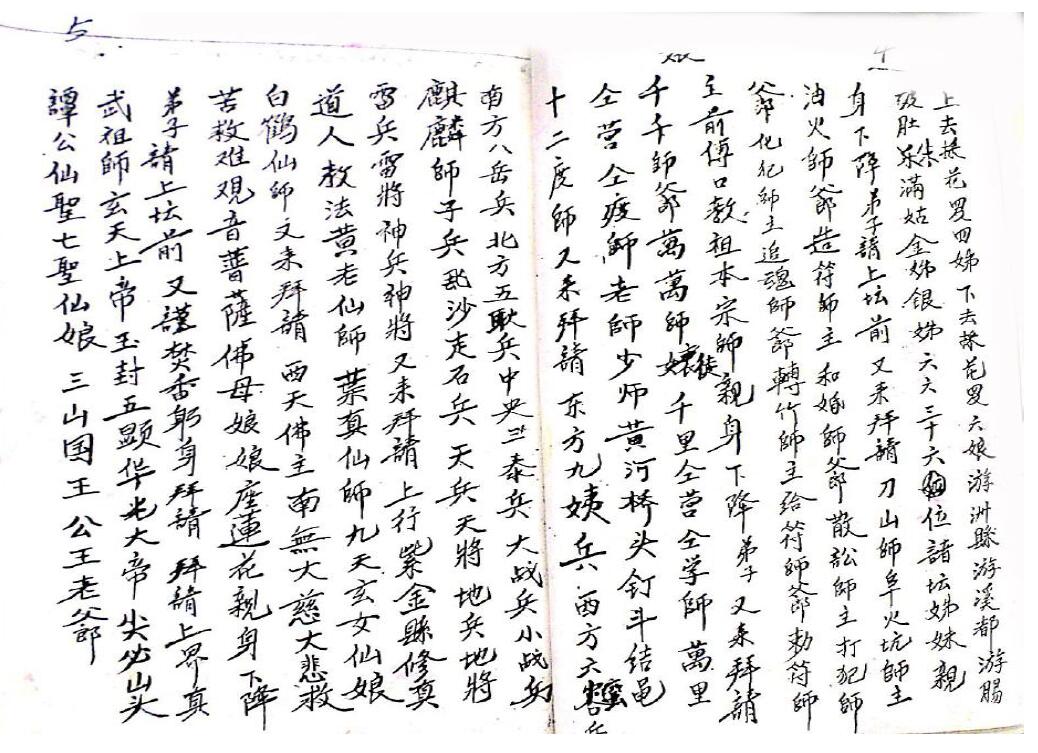 上去採花罗四姊下去採花罗六娘游洲縣游溪都游腸
朱
肚乐滿姑金姊银姊六六三十六位諸坛姊妹親
身下降弟子請上坛前又来拜請刀山師阜火坑師主
油火師爺造符師主和婚師爺散訟師主打犯師
爺化犯師主追魂師爺轉竹師主给符師爺勅符師
主前傅口教祖本宗師親身下降弟子又来拜請
千千師爺萬萬師徒千里仝营仝学師萬里
仝营仝度師老師少师黄河桥头钉斗结邑
十二度師又来拜請东方九姨兵西方六蛮兵
南方八岳兵北方五耿兵中央三泰兵大战兵小战兵
麒麟師子兵乱沙走石兵天兵天將地兵地將
雪兵雷將神兵神將又来拜請上行紫金縣修真
道人教法黄老仙師葉真仙師九天玄女仙娘
白鶴仙師又来拜請西天佛主南無大慈大悲救
苦救难观音菩薩佛母娘娘座連花親身下降
弟子請上坛前又謹焚香躬身拜請拜請上界真
武祖師玄天上帝玉封五顕华光大帝尖必山头
譚公仙聖七聖仙娘三山国王公王老爺